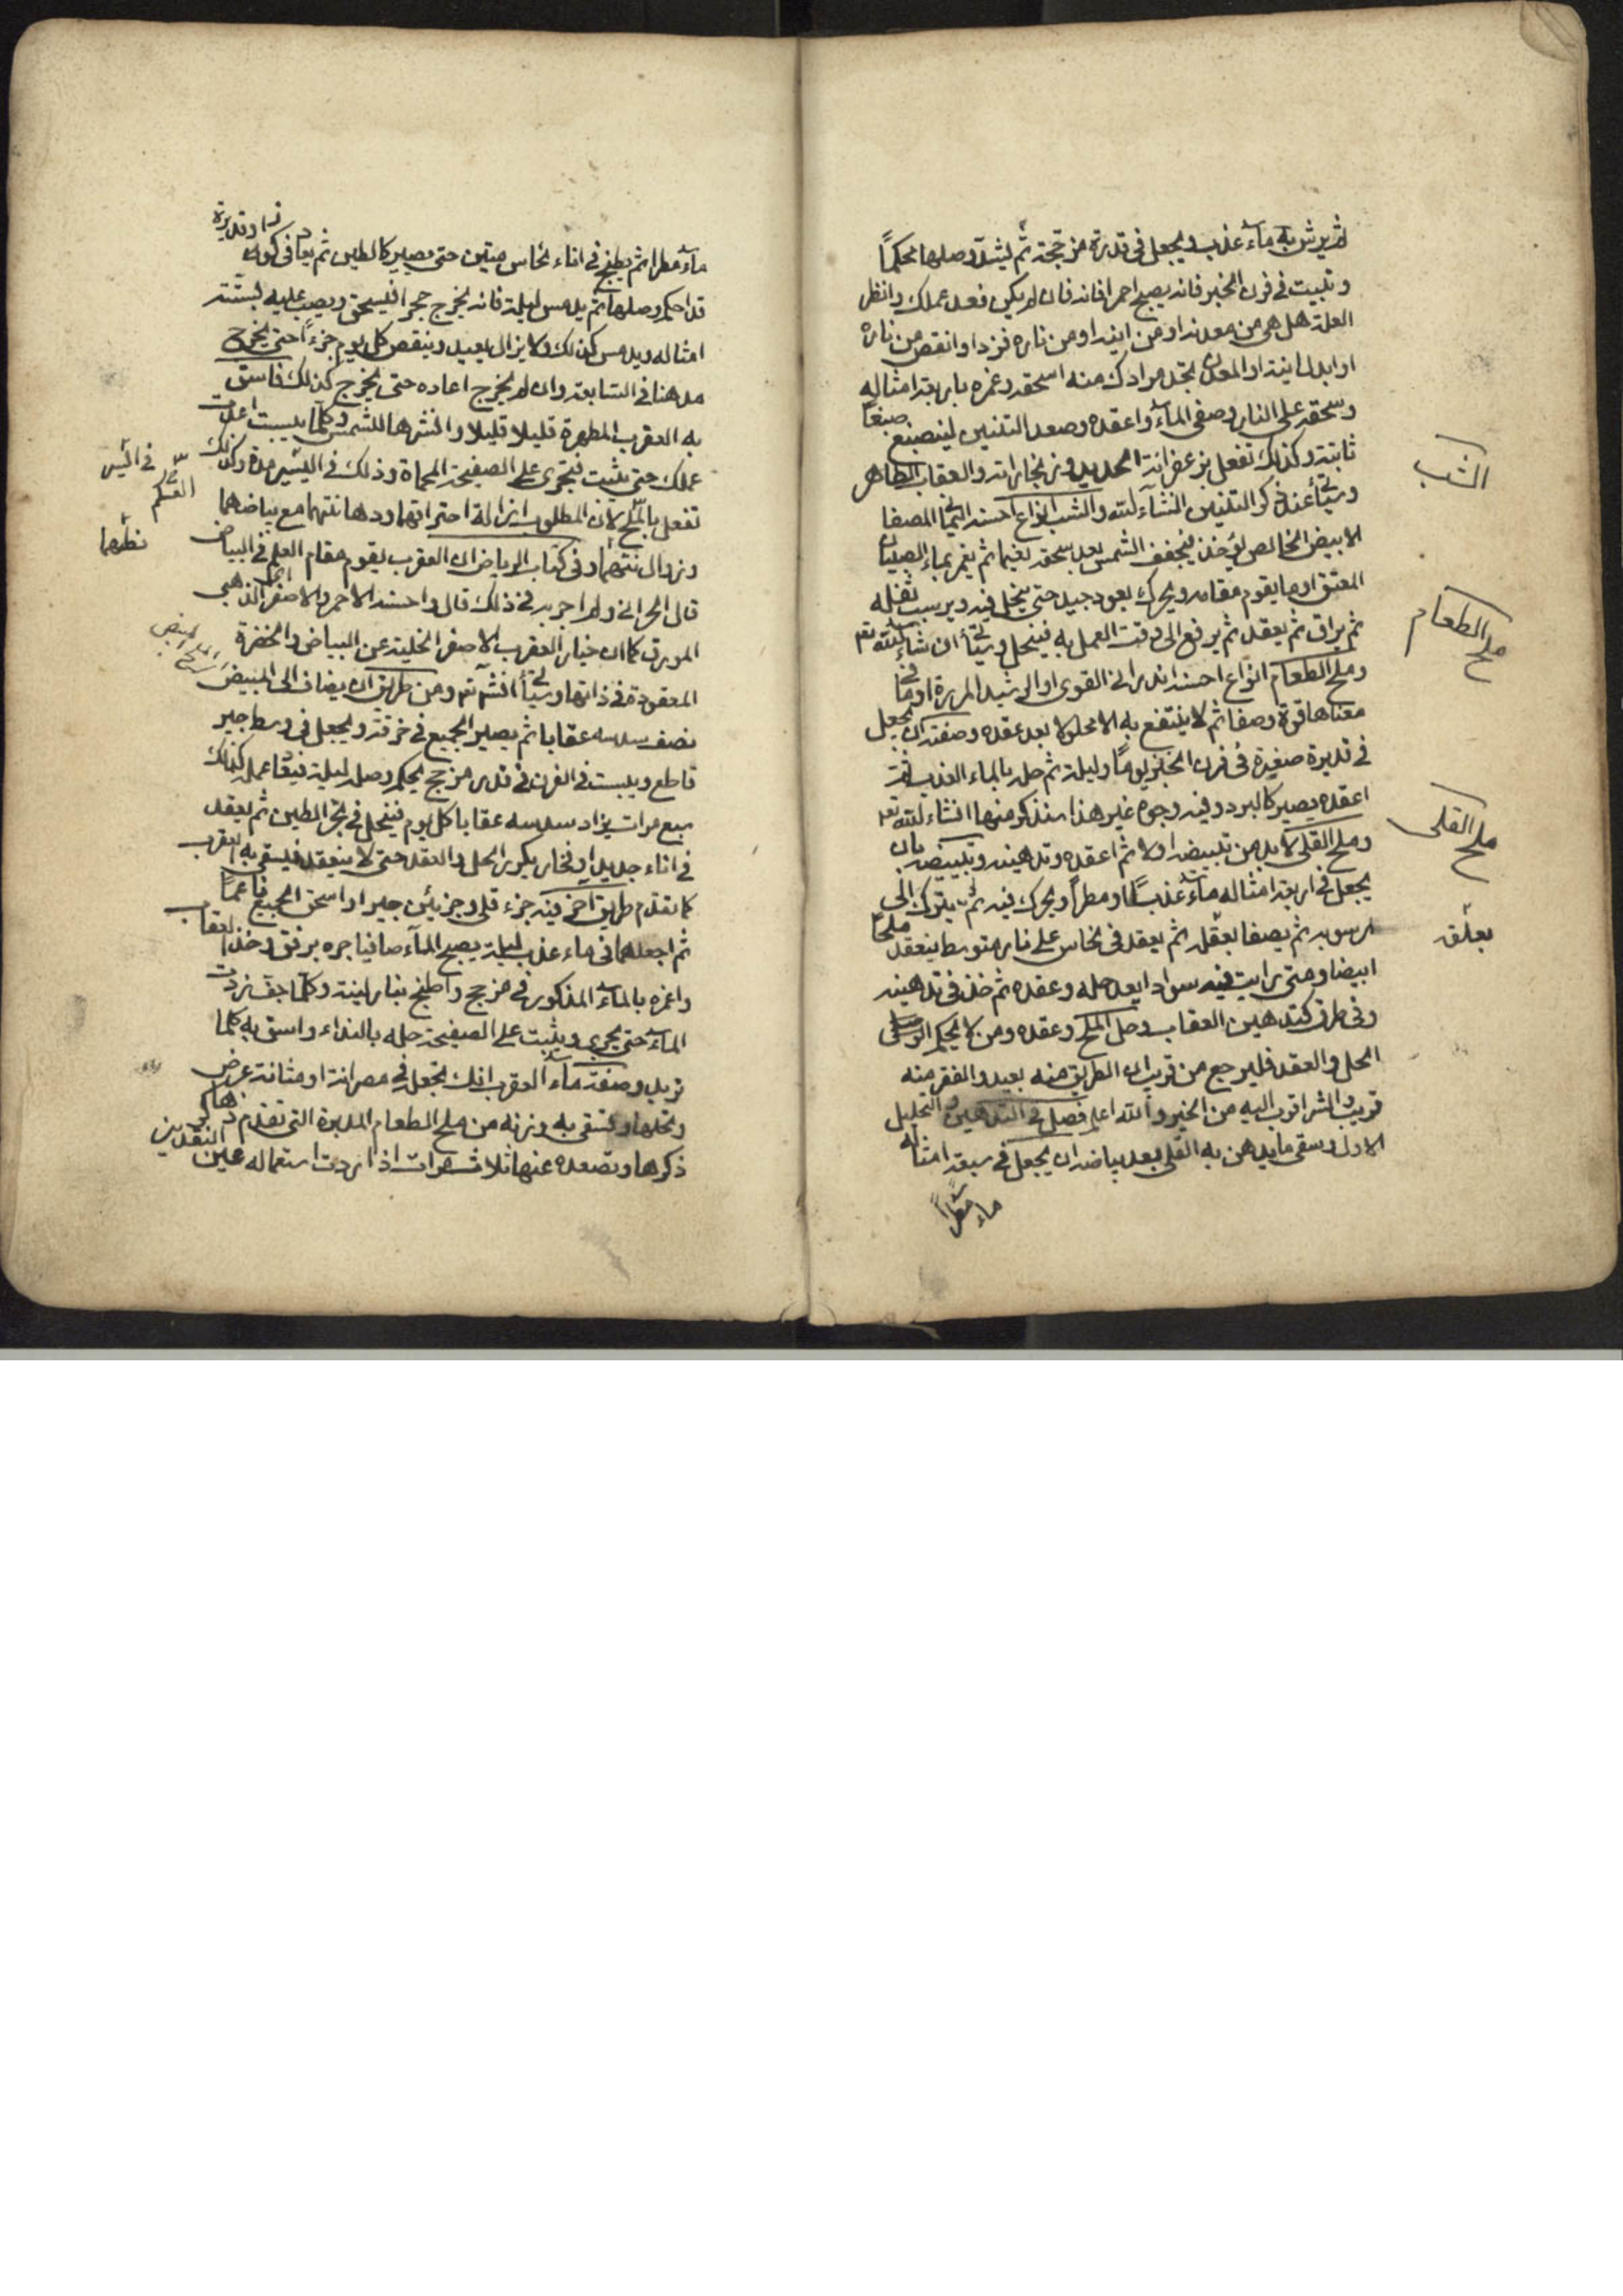 ثم يرش به ماء عذب ويجعل في قديرة مزججة ثم يشد وصلها محكما
وتبيت في فرن الخبز فانه يصبح احمرا فانه فان لم يكن فعد عملك وانظر
العلة هل هي من معدنه او من اينه او من ناره فزد او انقص من ناره
او ابدل اينته او المعدن تجد مرادك منه اسحقه وغمره باربعة امثاله
وسحقه على النار وصفي الماء واعقده وصعد التنين لينصبغ صبغا
ثابته وكذلك تفعل بزعفرانة الحديد وزنجاراته والعقاب الطاهر
وسيأتي عند ذكر التنين انشاء الله والشب انواع احسنه اليماني المصفا
الابيض الخالص يؤخذ فيجفف الشمس بعد سحقه نعيما ثم يغمر بماء الصبيان
المعتق او ما يقوم مقامه ويحرك بعود جيد حتى ينحل فيه ويرسب ثفله
ثم يراق ثم يعقد ثم يرفع الى وقت العمل به فينحل وسيأتي ان شاء الله تع
وملح الطعام انواع احسنه اندراني القوى او الرشيد المريرة او ما في
معناها قوة وصفا ثم لا ينتفع به الا محلولا بعد عقده وصفته ان يجعل
في قديرة صغيرة في فرن الخبز يوما وليلة ثم حله بالماء العذب ثم
اعقده يصير كالبرد وفيه وجوه غير هذا سنذكر منها انشاء الله تعه
وملح القلي لا بد من تبييضه اولا ثم اعقده وتدهينه وتبييضه بان
يجعل في اربعة امثاله ماء عذبا او مطرا ويحرك فيه ثم يترك الى
رسوبه ثم يصفا بعلقه ثم يعقد في نحاس على نار متوسط ينعقد ملحا
ابيضا ومتى رايت فيه سوادا يعد حله وعقده ثم خذ في تدهينه
وفي طرق كتدهين العقاب وحل الملح وعقده ومن لا يحكم
الحل والعقد فليرجع من قريب ان الطريق منه بعيد والفقر منه
قريب والشر اقرب اليه من الخير والله اعلم فصل في التدهين والتحليل
الاول وسقى ما يدهن به القلي بعد بياضه ان يجعل في سبعة امثاله
ماء مطرا
الشب
ملح الطعام
ملح القلى
بعلقه
ماء مطرا ثم يطبخ في اناء نحاس متين حتى يصير كالطين ثم يعاد في كوز او قديرة
قد احكم وصلها ثم يدمس ليلة فانه يخرج حجرا فيسحق ويصب عليه بستة
امثاله ويدمس كذلك ولا يزال يعيد وينقص كل يوم جزءا حتى يخرج
مدهنا في السابعة وان لم يخرج اعاده حتى يخرج كذلك فاسق
به العقرب المطهرة قليلا قليلا وانشرها للشمس وكلما يبست اعدت
عملك حتى يثبت فيجرى على الصفيحة المحماة وذلك في اليسير مدة وكذلك
تفعل بالملح لان المطلوب ازالة احتراقهما ودهانتهما مع بياضهما
وزوال نتنهما وفي كتاب الرياض ان العقرب يقوم مقام العلم في البياض
قال الحراني ولم اجربه في ذلك قال واحسنه الاحمر والاصفر الذهبي
المورق كما ان خيار العقرب الاصفر الخلية عن البياض والخضرة
المعقودة في ذاتها وسيأتي انشاء الله تع ومن طريق ان يضاف الى المبيض
نصف سدسه عقابا ثم يصير الجميع في خرقة ويجعل في وسط جير
قاطع ويبيت في الفرن في قدر مزجج يحكم وصله ليلة فيعاد عمله كذلك
سبع مرات يزاد سدسه عقابا كل يوم فينحل في بخر الطين ثم يعقد
في اناء جديد او فخار يكرر الحل والعقد حتى لا ينعقد فيسقى به العقرب
كما تقدم طريق اخر فيه جزء قلى وجزئين جيرا واسحق الجميع ناعما
ثم اجعلهما في ماء عذب ليلة يصبح الماء صافيا جره برفق وخذ العقاب
واغمره بالماء المذكور في مزجج واطبخ بنار لينة وكلما جف زدت
الماء حتى يجري ويثبت على الصفيحة حله بالنداء واسق به كلما
تريد وصفة ماء العقرب انك تجعل في مصرانة او مثانة عرض
وتحلها وتسقى به وزنه من ملح الطعام المدبرة التي تقدم
ذكرها وتصعده عنها ثلاث مرات اذا اردت استعماله عين النقدين
نظرهما